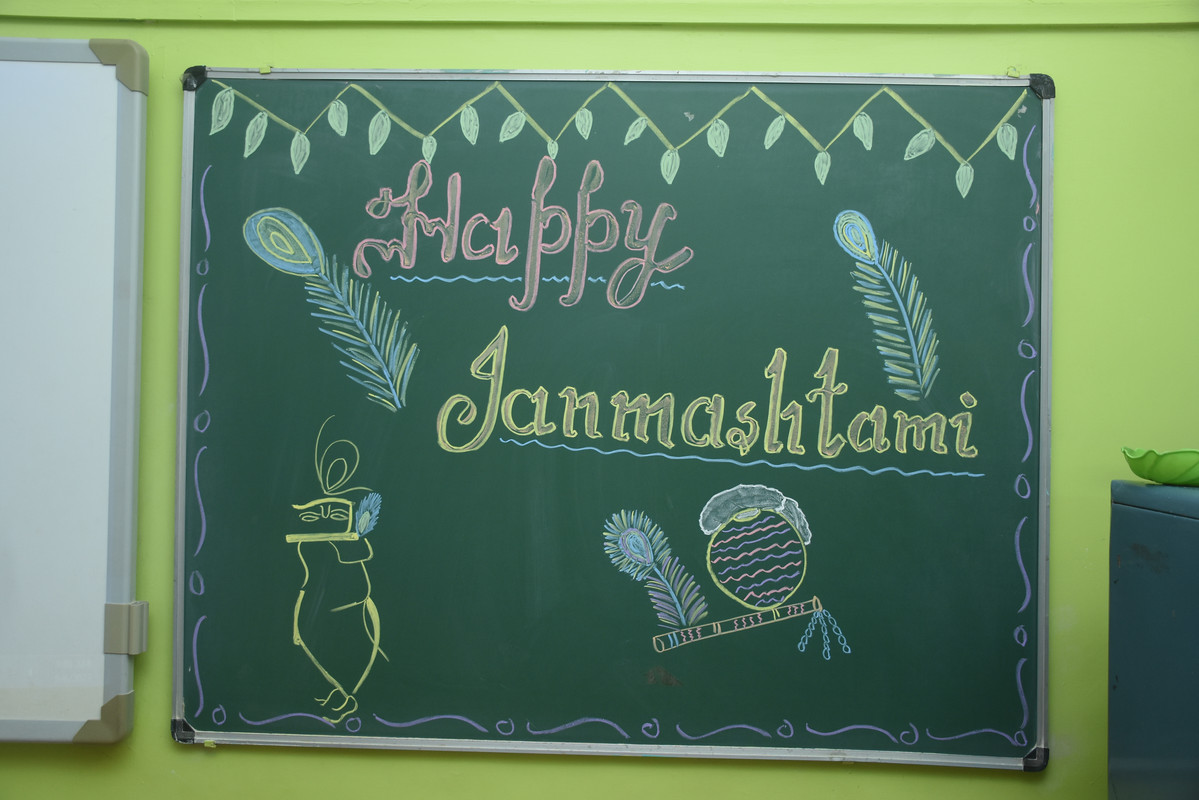 Happy
Janmashtami